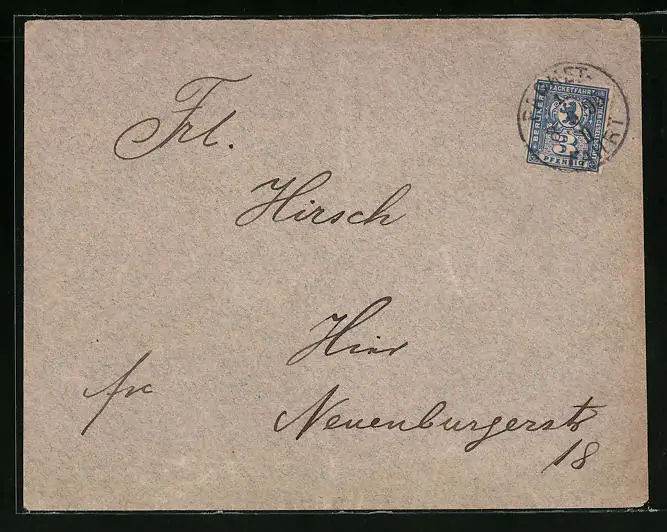 Frl.
Hirsch
Hier
frc
Neuenburgerstr
18
PACKETFAHRT
BERLINER
3
PFENNIG
PACKET-
FAHRT